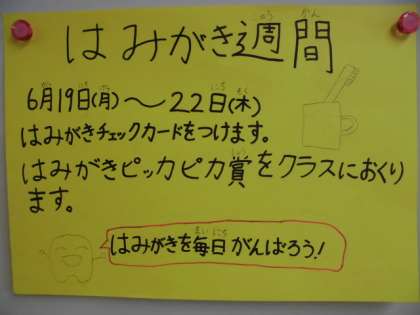 はみがき週間
6月19日(月)～22日(木)
はみがきチェックカードをつけます。
はみがきピッカピカ賞をクラスにおくり
ます。
はみがきを毎日がんばろう!